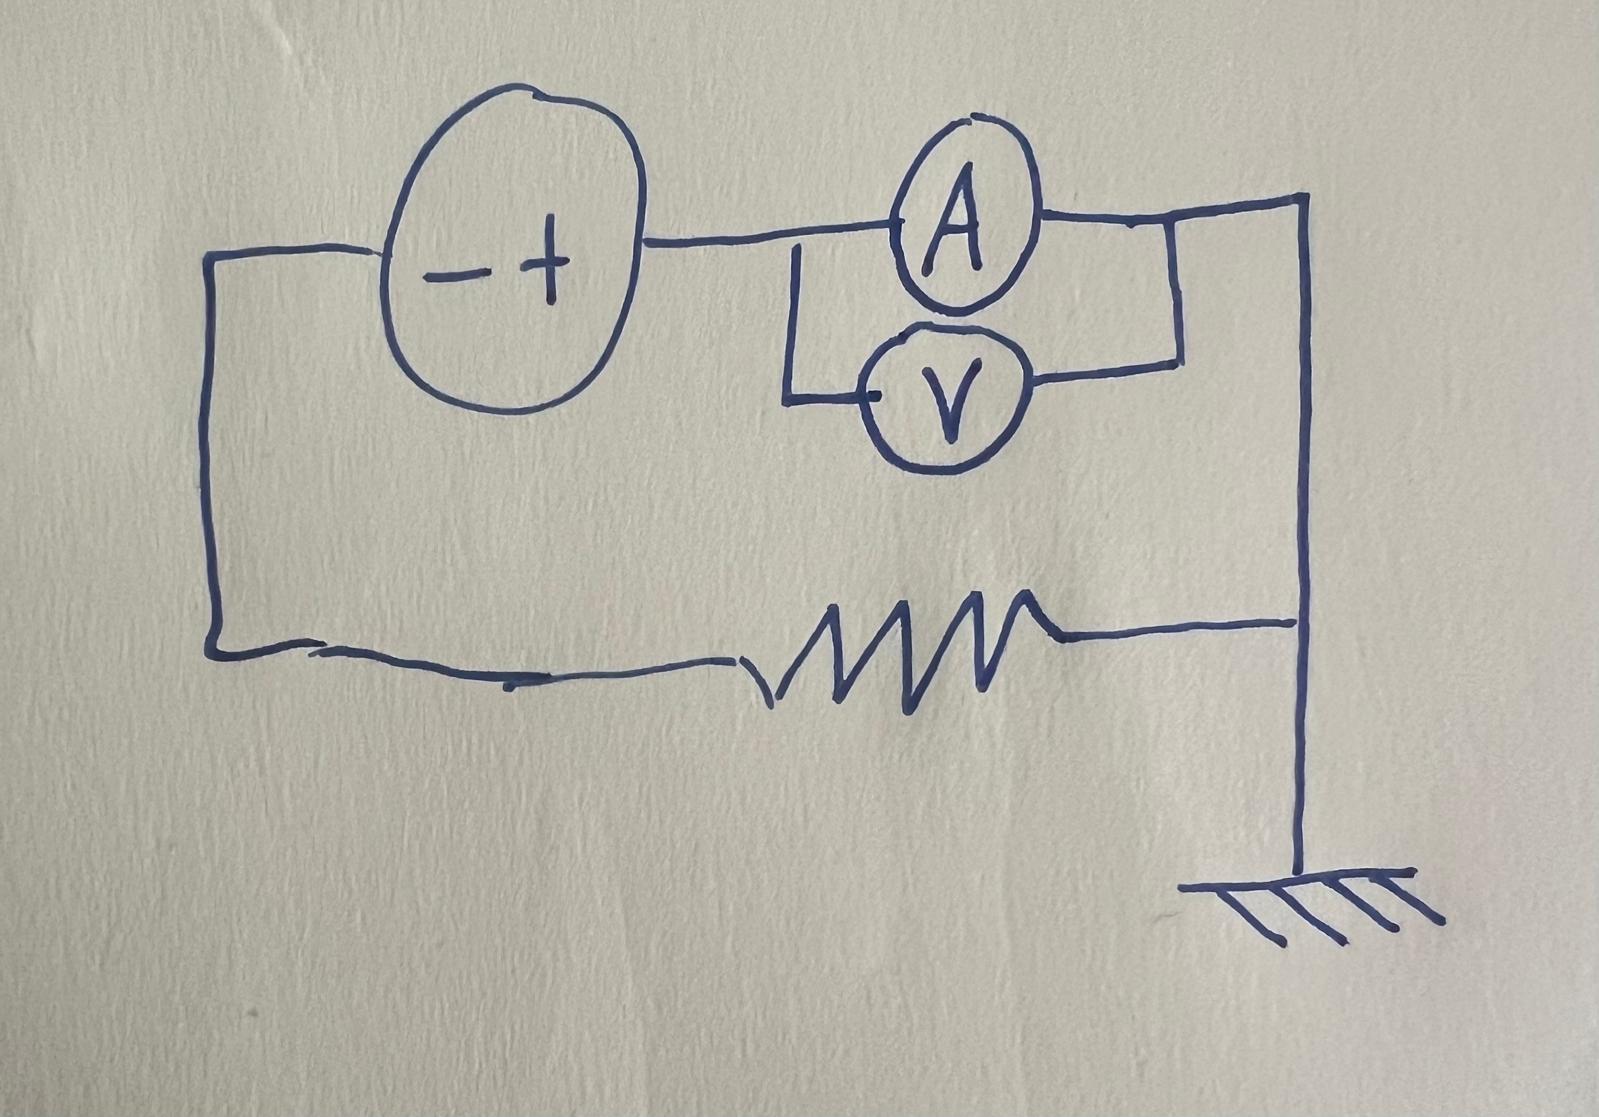 A
- +
V